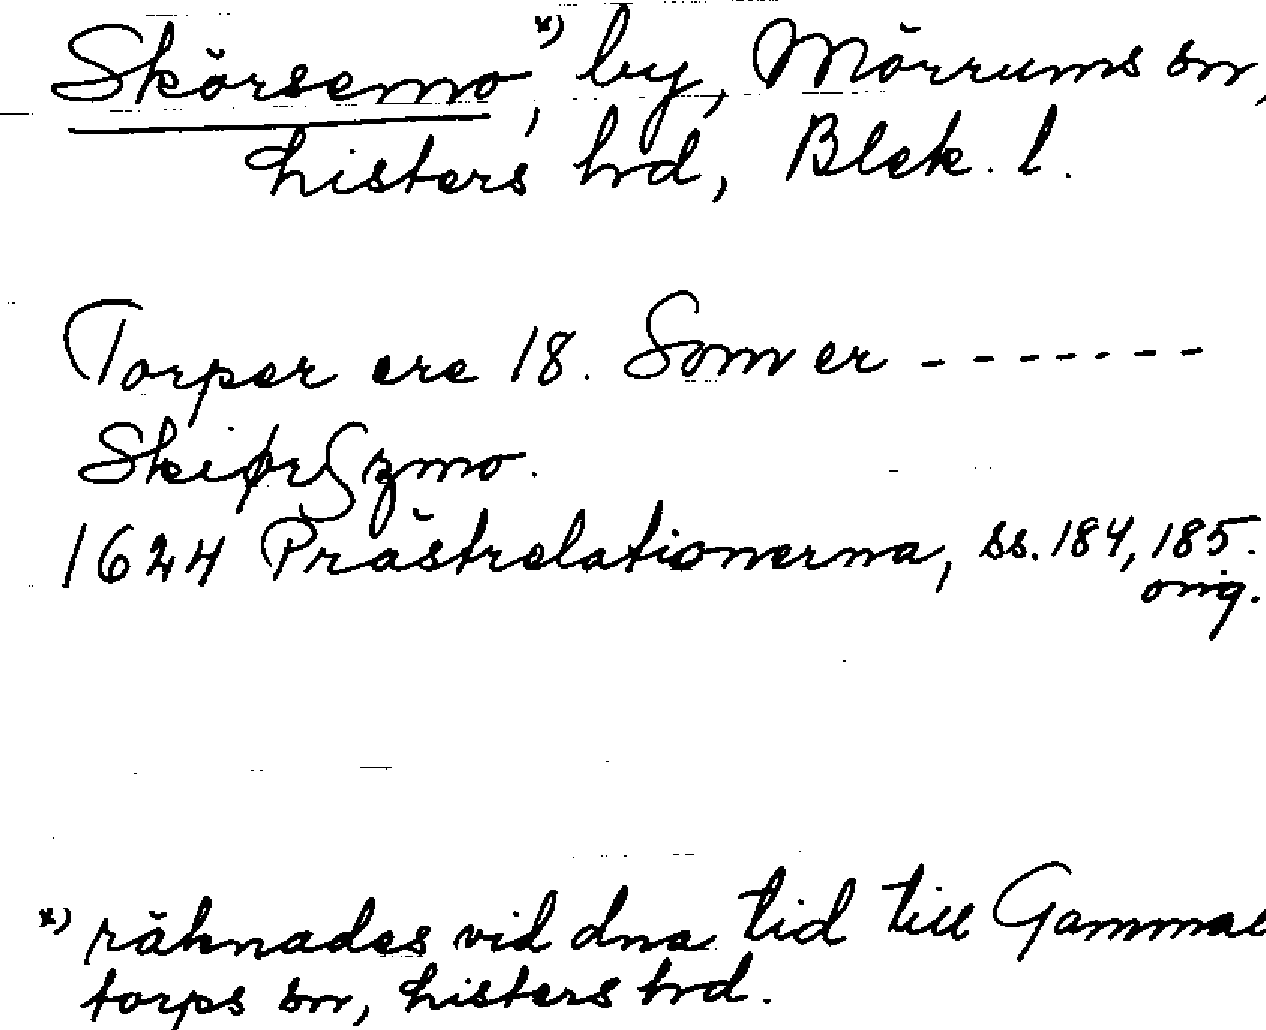 Skörsemo *), by, Mörrums sn,
Listers hd, Blek. l.
Torper ere 18. Som er -------
1624 Prästrelationerna, ss. 184, 185.
orig.
*) räknades vid dna tid till Gammal
torps sn, Listers hd.